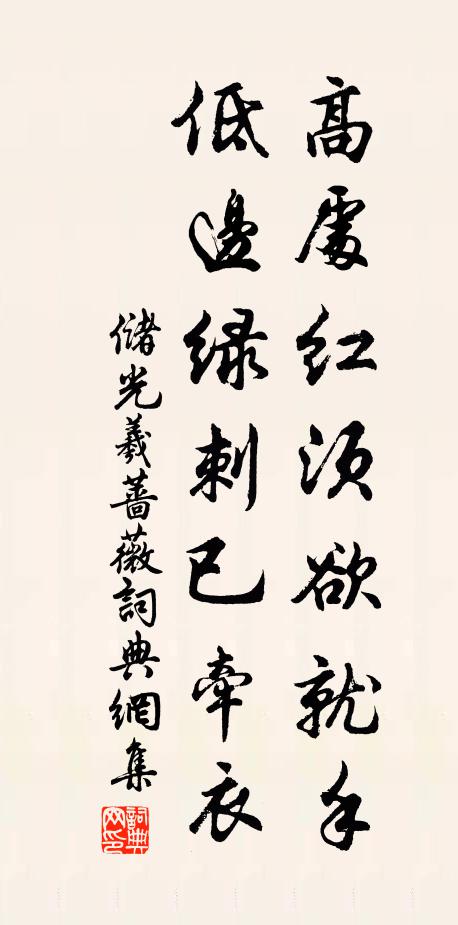 高處紅須欲就手
低邊綠刺已牽衣
儲光羲薔薇詞典網集
詞典網印